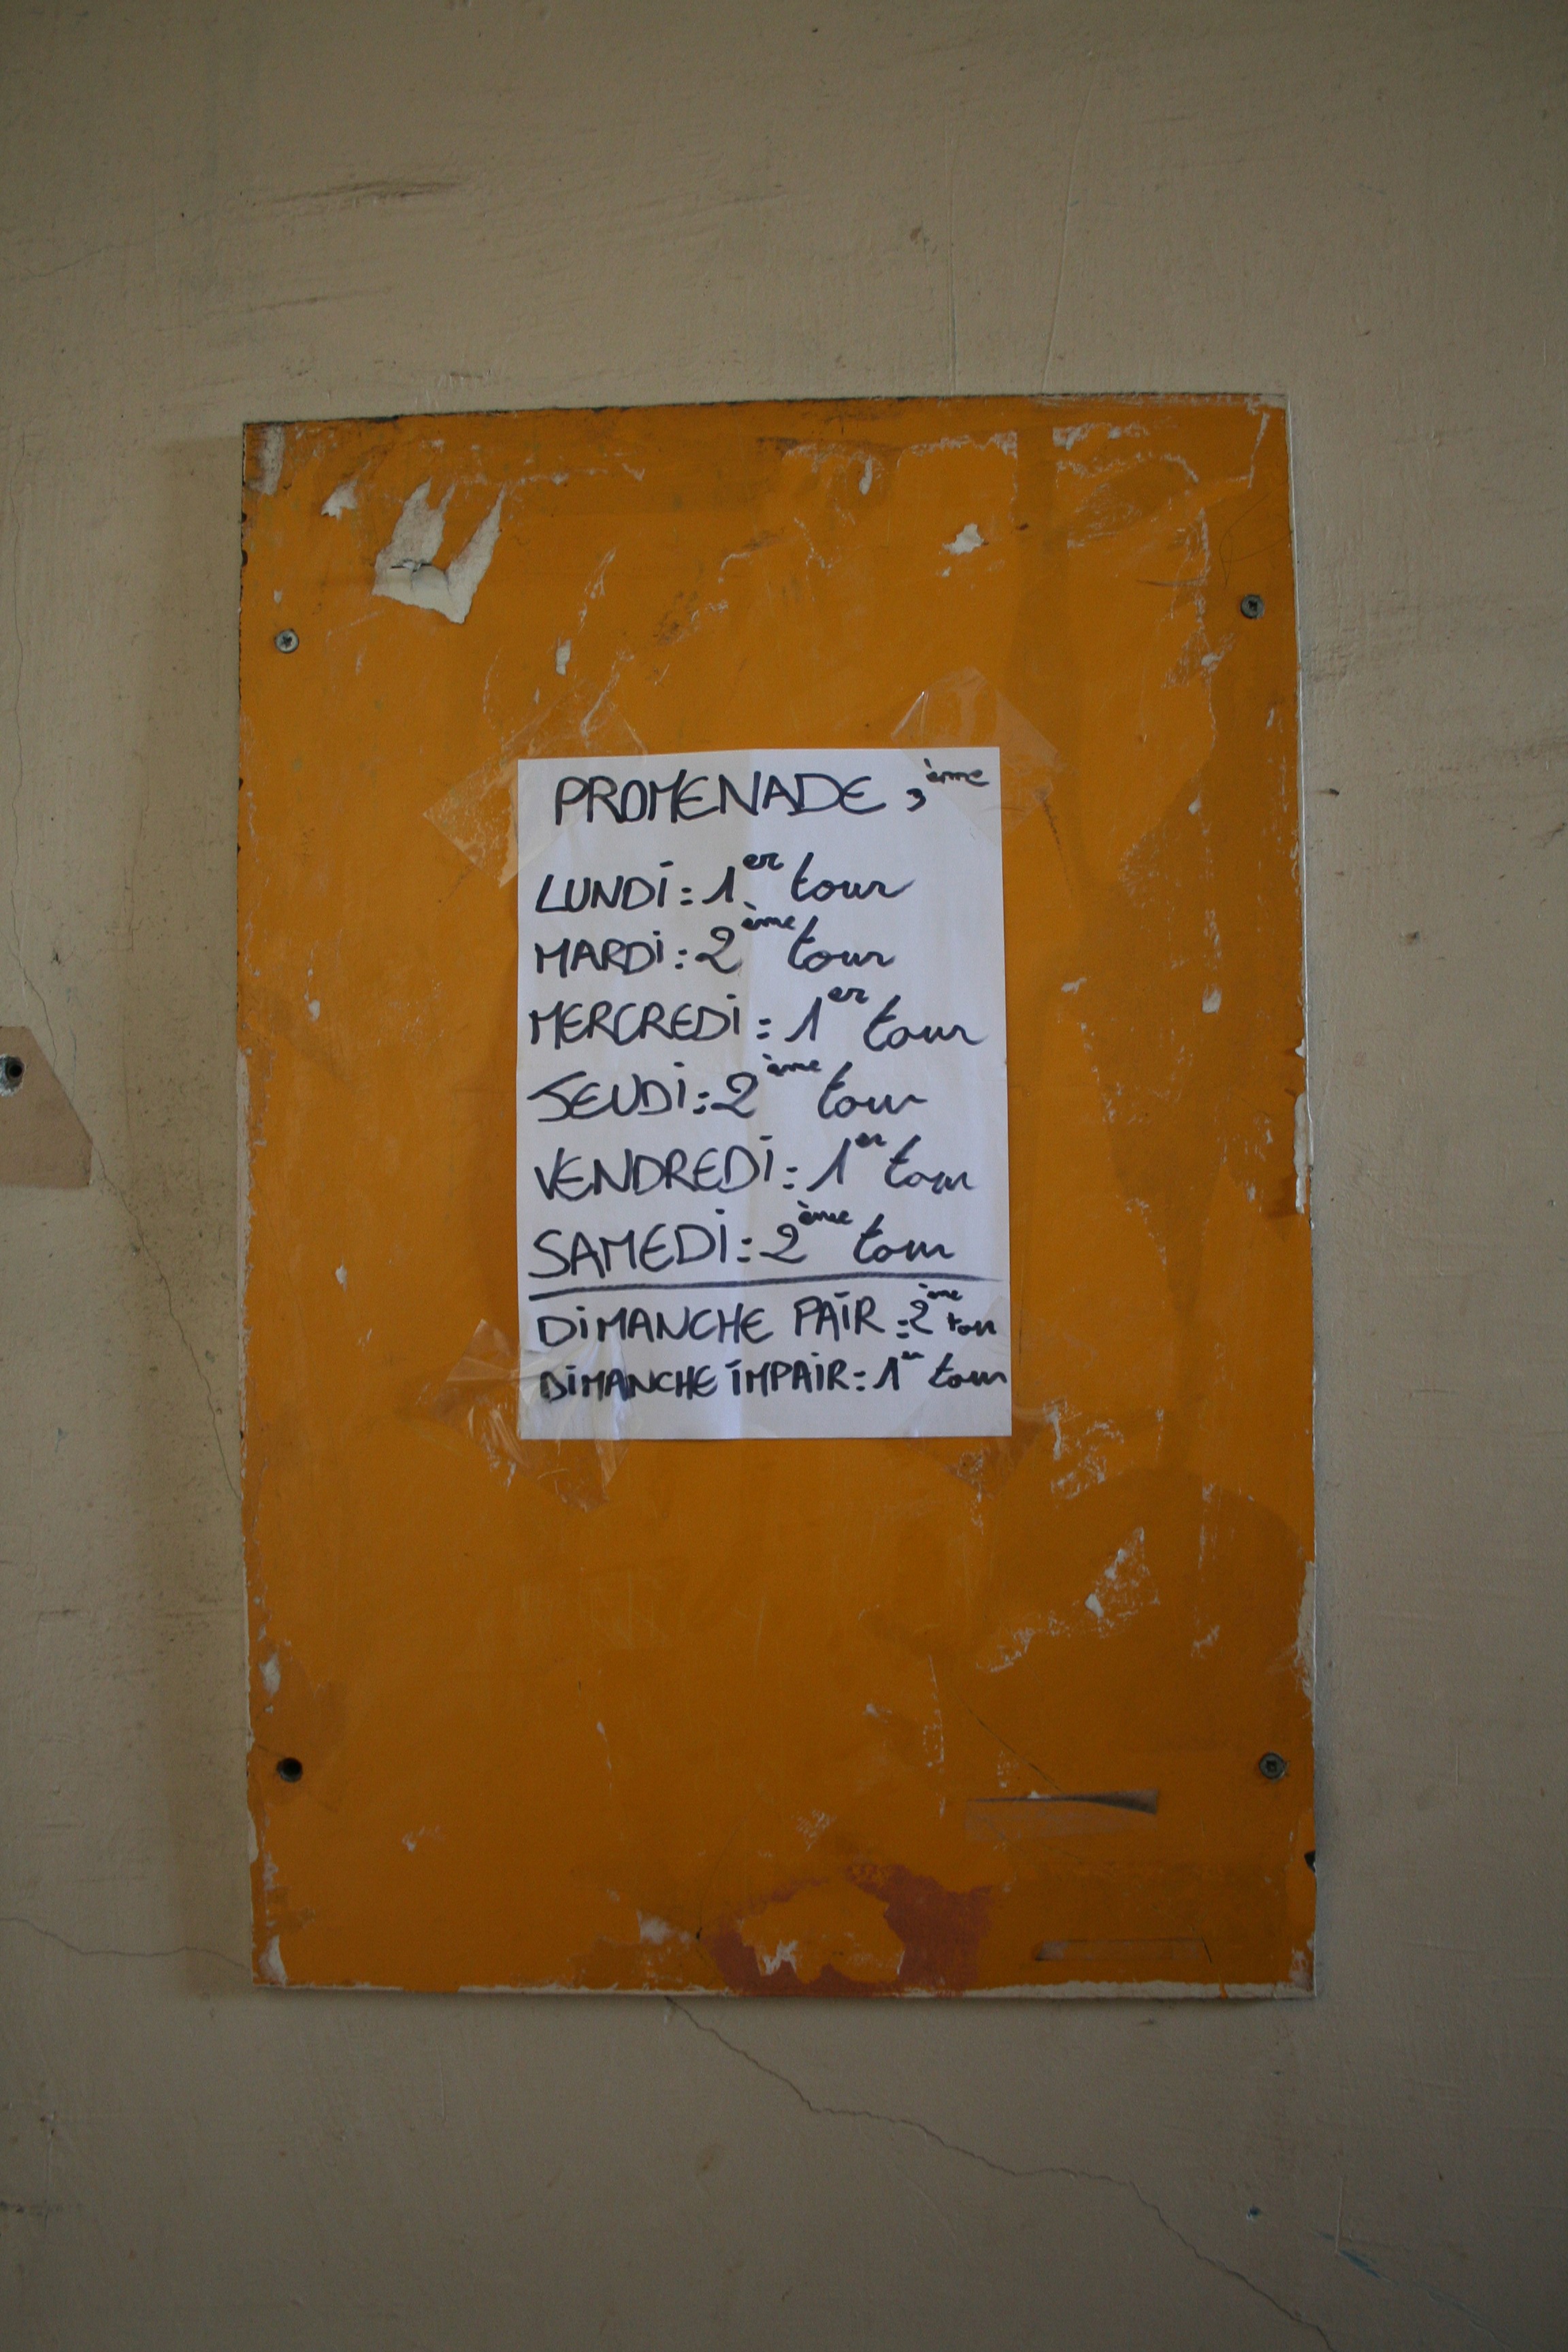 PROMENADE 3ème
LUNDI : 1er tour
MARDI : 2ème tour
MERCREDI : 1er tour
JEUDI : 2ème tour
VENDREDI : 1er tour
SAMEDI : 2ème tour
DIMANCHE PAIR : 2ème tour
DIMANCHE IMPAIR : 1er tour